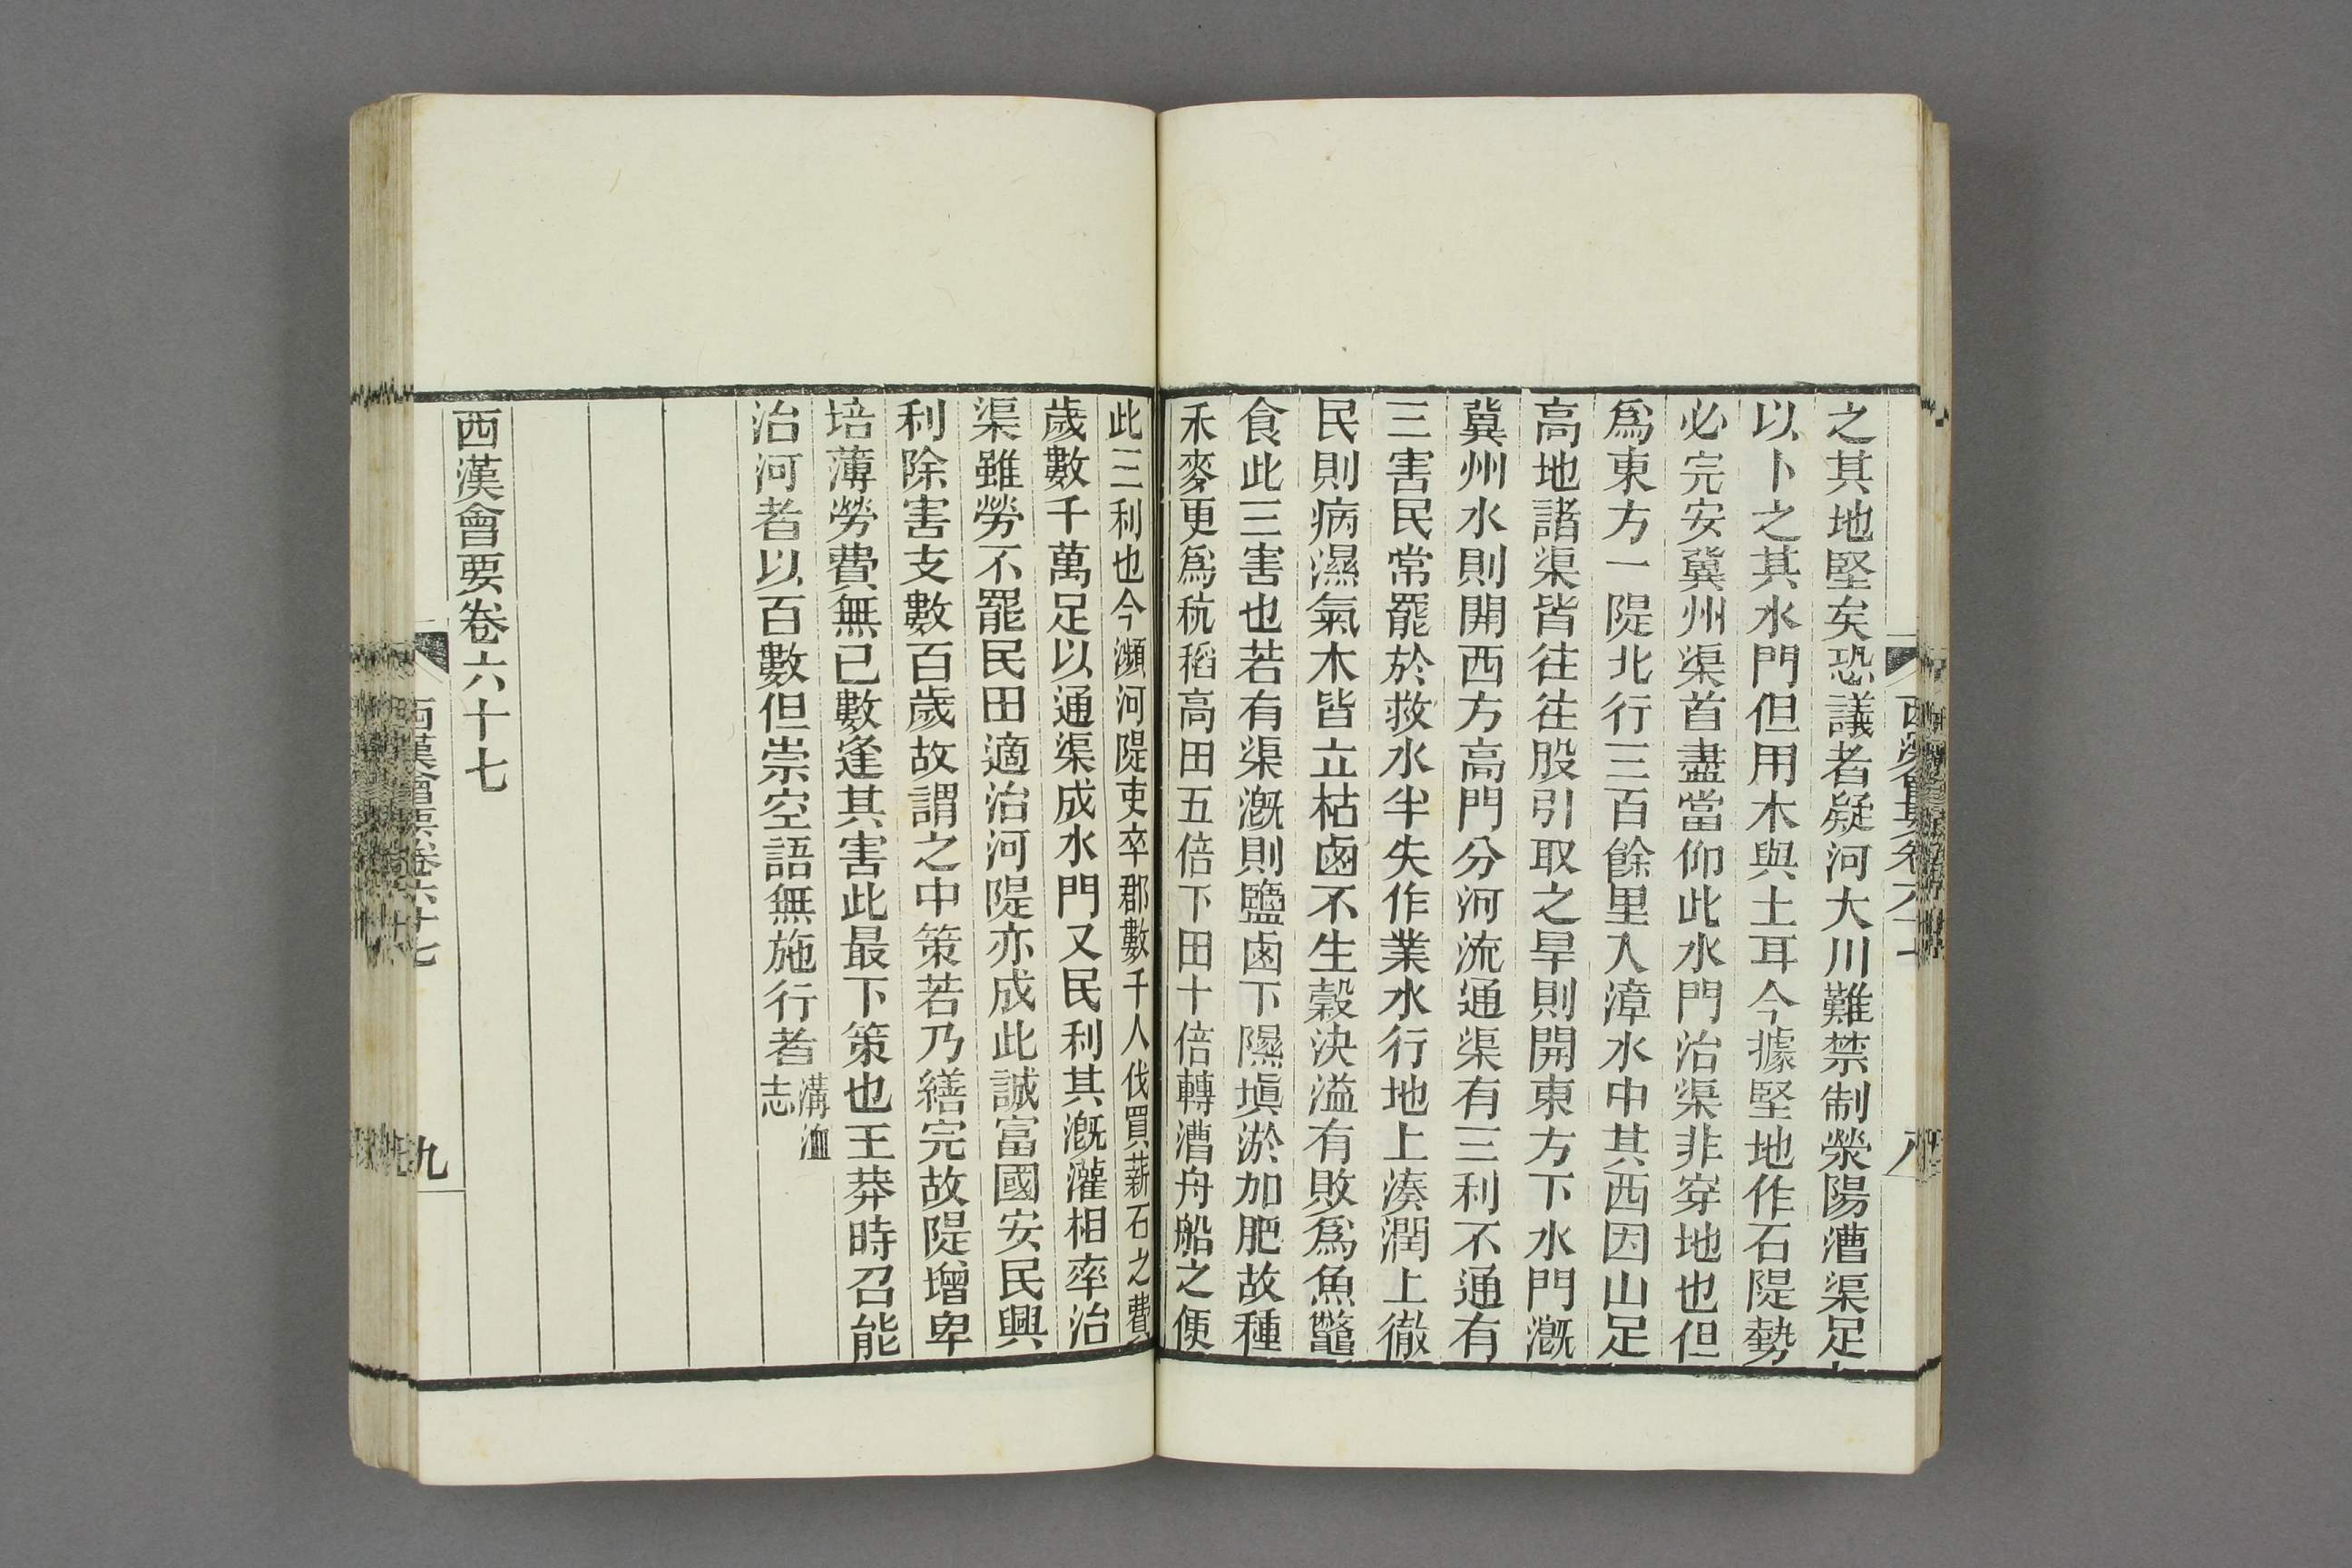 之其地堅矣恐議者疑河大川難禁制滎陽漕渠足
以卜之其水門但用木與土耳今據堅地作石隄勢
必完安冀州渠首盡當仰此水門治渠非穿地也但
爲東方一隄北行三百餘里入漳水中其西因山足
高地諸渠皆往往股引取之旱則開東方下水門漑
冀州水則開西方高門分河流通渠有三利不通有
三害民常罷於救水半失作業水行地上湊潤上徹
民則病濕氣木皆立枯鹵不生穀決溢有敗爲魚鼈
食此三害也若有渠漑則鹽鹵下隰塡淤加肥故種
禾麥更爲秔稻高田五倍下田十倍轉漕舟船之便
此三利也今瀕河隄吏卒郡數千人伐買薪石之費
歲數千萬足以通渠成水門又民利其漑灌相率治
渠雖勞不罷民田適治河隄亦成此誠富國安民興
利除害支數百歲故謂之中策若乃繕完故隄增卑
培薄勞費無已數逢其害此最下策也王莽時召能
治河者以百數但崇空語無施行者溝洫志
西漢會要卷六十七
西漢會要卷六十七
九